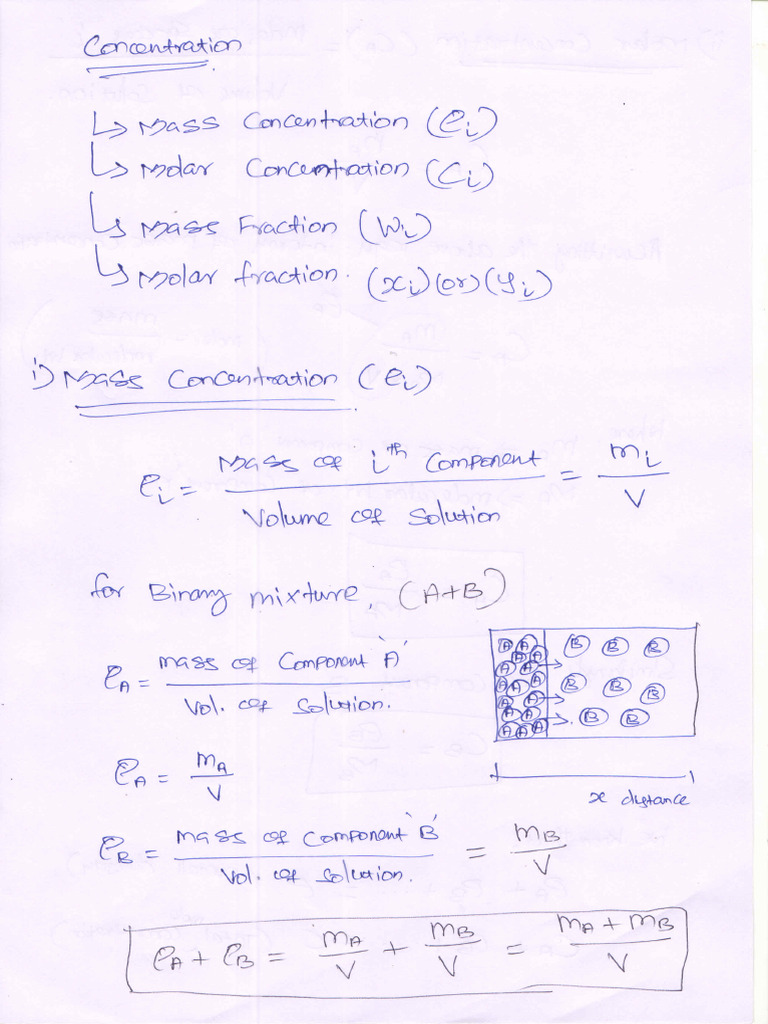 Concentration
↳ Mass Concentration (ρi)
↳ Molar Concentration (Ci)
↳ Mass Fraction (Wi)
↳ Molar fraction. (xi) (or) (yi)
i) Mass Concentration (ρi)
ρi = Mass of ith Component / Volume of Solution = mi / V
for Binary mixture, (A+B)
ρA = mass of Component 'A' / Vol. of Solution.
ρA = mA / V
x distance
ρB = mass of Component 'B' / Vol. of Solution. = mB / V
ρA + ρB = mA / V + mB / V = mA + mB / V